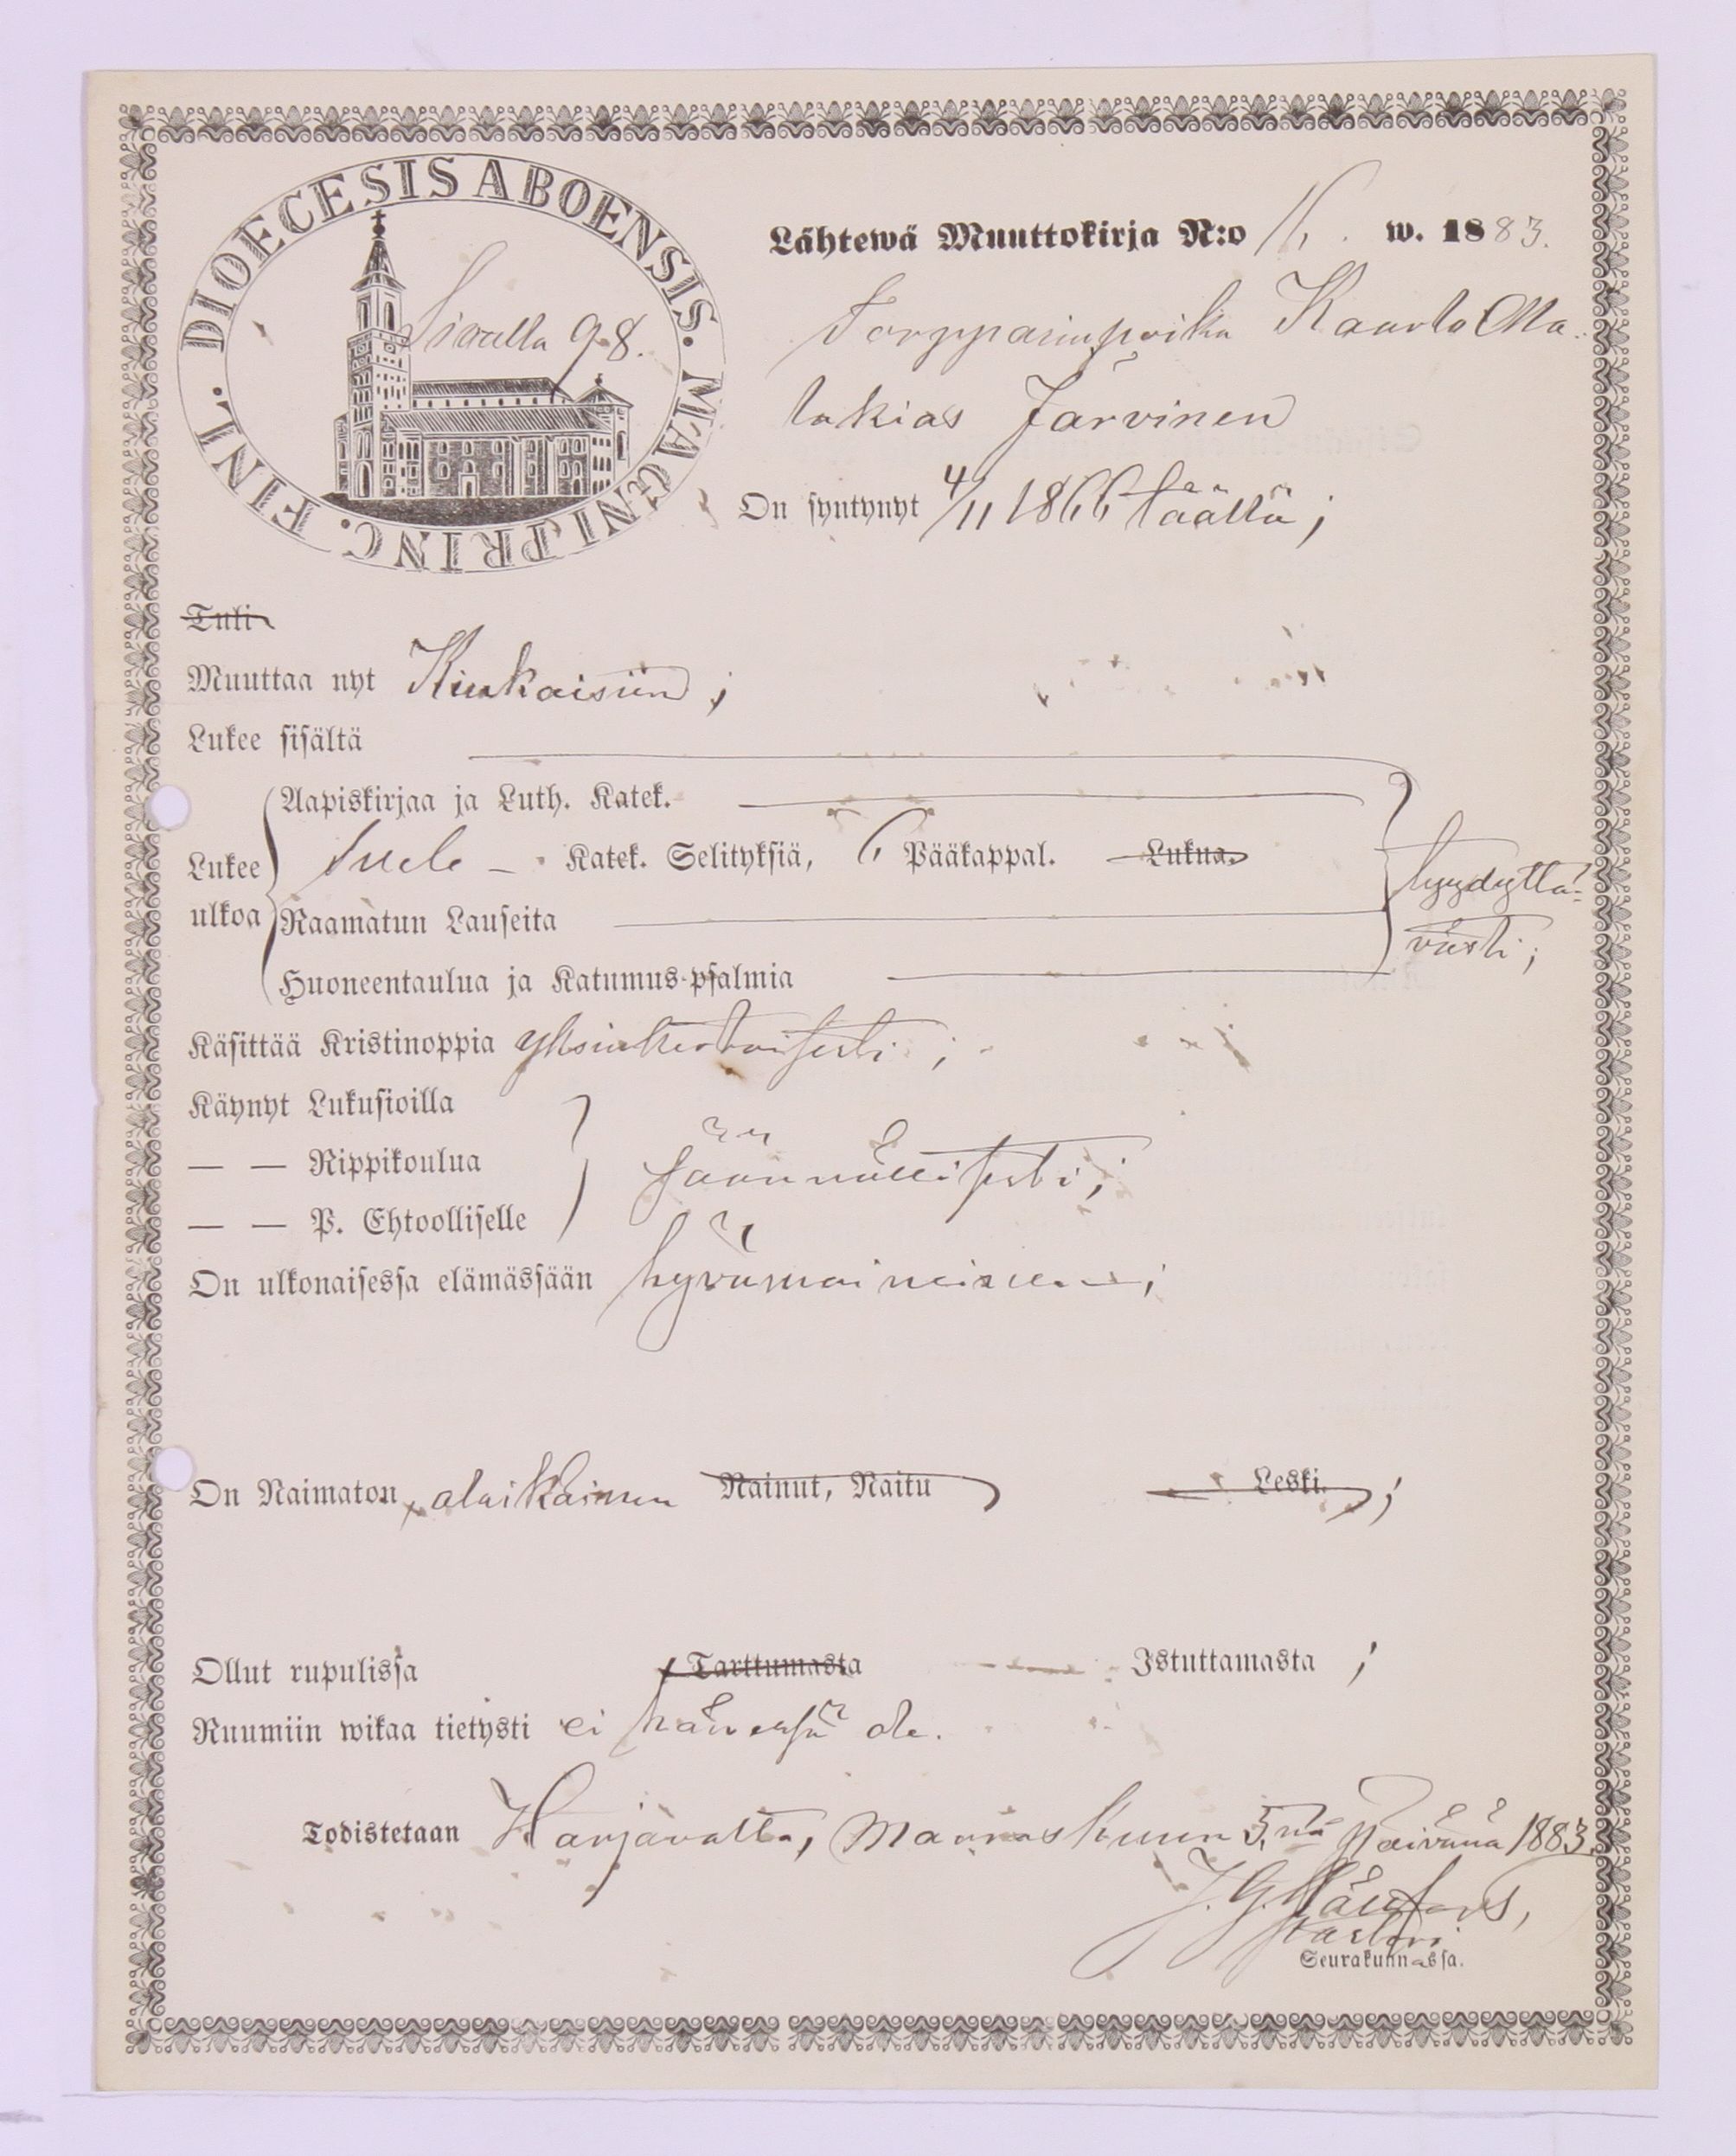 DIOECESIS ABOENSIS. MAGNI PRINC. FINL.
Sivulla 98.
Lähtewä Muuttokirja N:o 16. w. 1883.
Torpparinpoika Kaarlo Ma-
lakias Järvinen
On syntynyt 4/11 1866 täällä;
Tuli
Muuttaa nyt Kiukaisiin;
Lukee sisältä
Aapiskirjaa ja Luth. Katek.
Lukee ulkoa
Katek. Selityksiä, 6 Pääkappal. Lukua.
Raamatun Lauseita
Huoneentaulua ja Katumus-psalmia
tyydyttä-
västi;
Käsittää Kristinoppia yksinkertaisesti;
Käynyt Lukusioilla
— — Rippikoulua
säännöllisesti;
— — P. Ehtoolliselle
On ulkonaisessa elämässään hyvämaineinen;
On Naimaton, alaikäinen Nainut, Naitu Leski.;
Ollut rupulissa Tarttumasta Istuttamasta;
Ruumiin wikaa tietysti ei hänessä ole.
Todistetaan Harjavalta, Marraskuun 5.nä Päivänä 1883.
J. G.
pastori
Seurakunnassa.